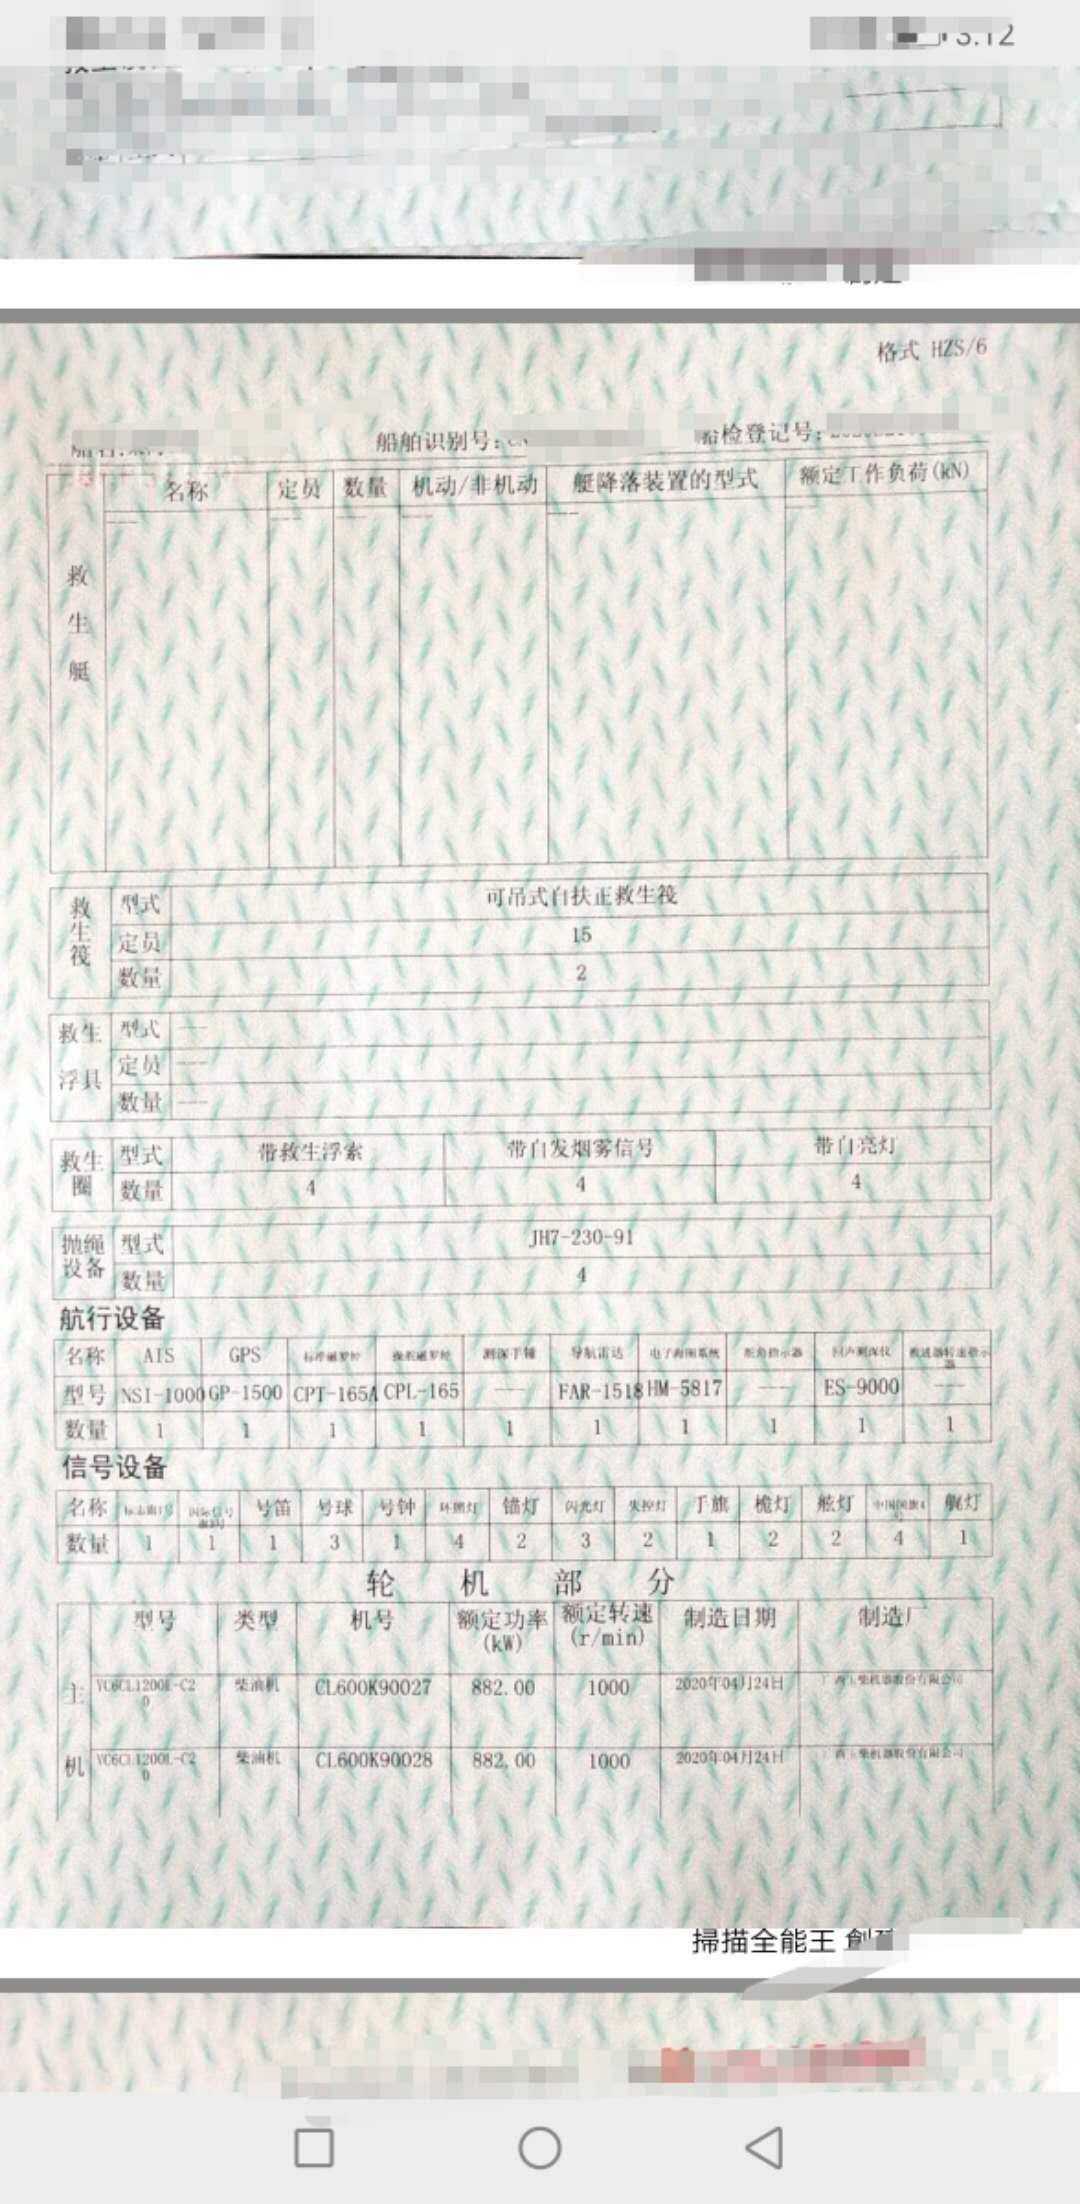 3:12
格式 HZS/6
船舶识别号:
船检登记号:
名称 定员 数量 机动/非机动 艇降落装置的型式 额定工作负荷(kN)
救生艇 --- --- --- --- --- ---
救生筏 型式 可吊式自扶正救生筏
定员 15
数量 2
救生浮具 型式 ---
定员 ---
数量 ---
救生圈 型式 带救生浮索 带自发烟雾信号 带自亮灯
数量 4 4 4
抛绳设备 型式 JH7-230-91
数量 4
航行设备
名称 AIS GPS 标准磁罗经 操舵磁罗经 测深手锤 导航雷达 电子海图系统 舵角指示器 回声测深仪 推进器转速指示器
型号 NSI-1000 GP-1500 CPT-165A CPL-165 --- FAR-1518 HM-5817 --- ES-9000 ---
数量 1 1 1 1 1 1 1 1 1 1
信号设备
名称 号笛 号球 号钟 环照灯 锚灯 闪光灯 失控灯 手旗 桅灯 舷灯 艉灯
数量 1 1 1 3 1 4 2 3 2 1 2 2 4 1
轮机部分
型号 类型 机号 额定功率(kW) 额定转速(r/min) 制造日期 制造厂
主机 YC6CL1200L-C20 柴油机 CL600K90027 882.00 1000 2020年04月24日 广西玉柴机器股份有限公司
YC6CL1200L-C20 柴油机 CL600K90028 882.00 1000 2020年04月24日 广西玉柴机器股份有限公司
掃描全能王 創建